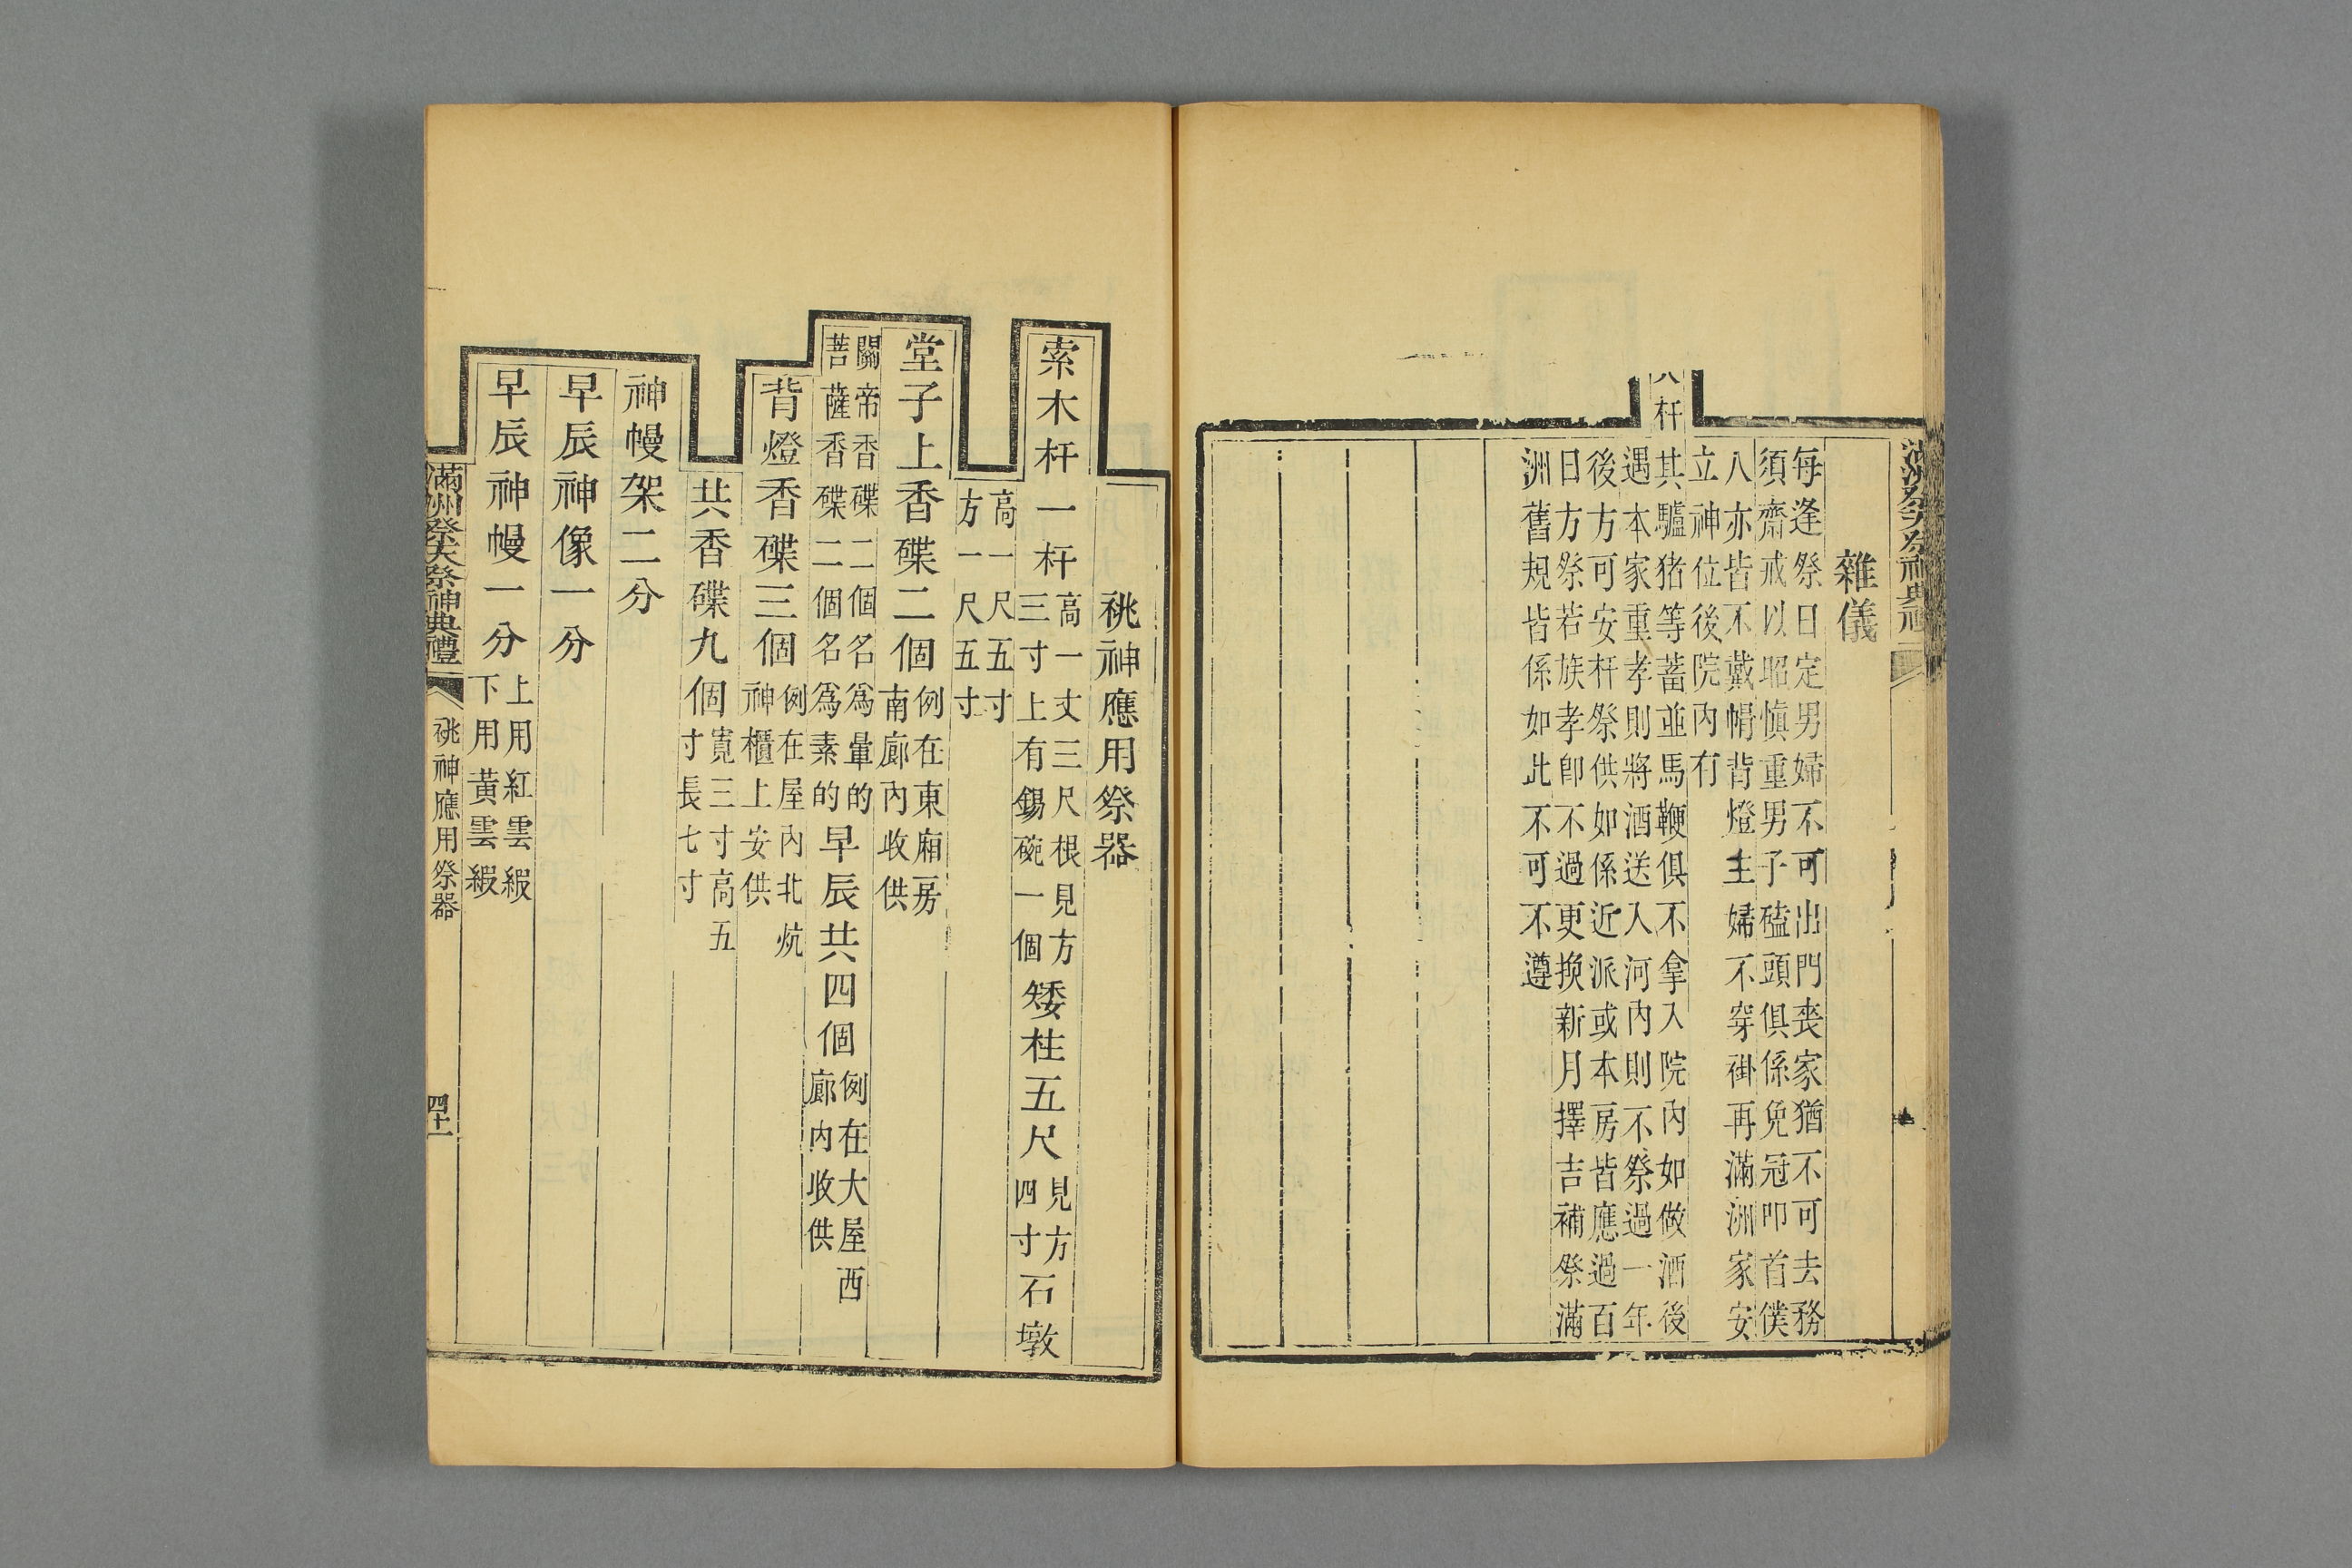 雜儀
每逢祭日定男婦不可出門丧家猶不可去務
須齋戒以昭愼重男子磕頭俱係免冠叩首僕
八亦皆不戴幗背燈主婦不穿褂再滿洲家安
立神位後院內有
杆
其驢猪等蓄並馬鞭俱不拿入院內如做酒後
遇本家重孝則將酒送入河內則不祭過一年
後方可安杆祭供如係近派或本房皆應過百
日方祭若族孝卽不過更换新月擇吉補祭滿
洲舊規皆係如此不可不遵
祧神應用祭器
索木杆一杆
高一丈三尺根見方
三寸上有錫碗一個
矮柱五尺
見方
四寸
石墩
高一尺五寸
方一尺五寸
堂子上香碟二個
例在東廂房
南廊內收供
關帝香碟二個名爲暈的
菩薩香碟二個名爲素的
早辰共四個
例在大屋西
廊內收供
背燈香碟三個
例在屋內北炕
神櫃上安供
共香碟九個
寬三寸高五
寸長七寸
神幔架二分
早辰神像一分
早辰神幔一分
上用紅雲緞
下用黃雲緞
滿洲祭天祭神典禮
祧神應用祭器